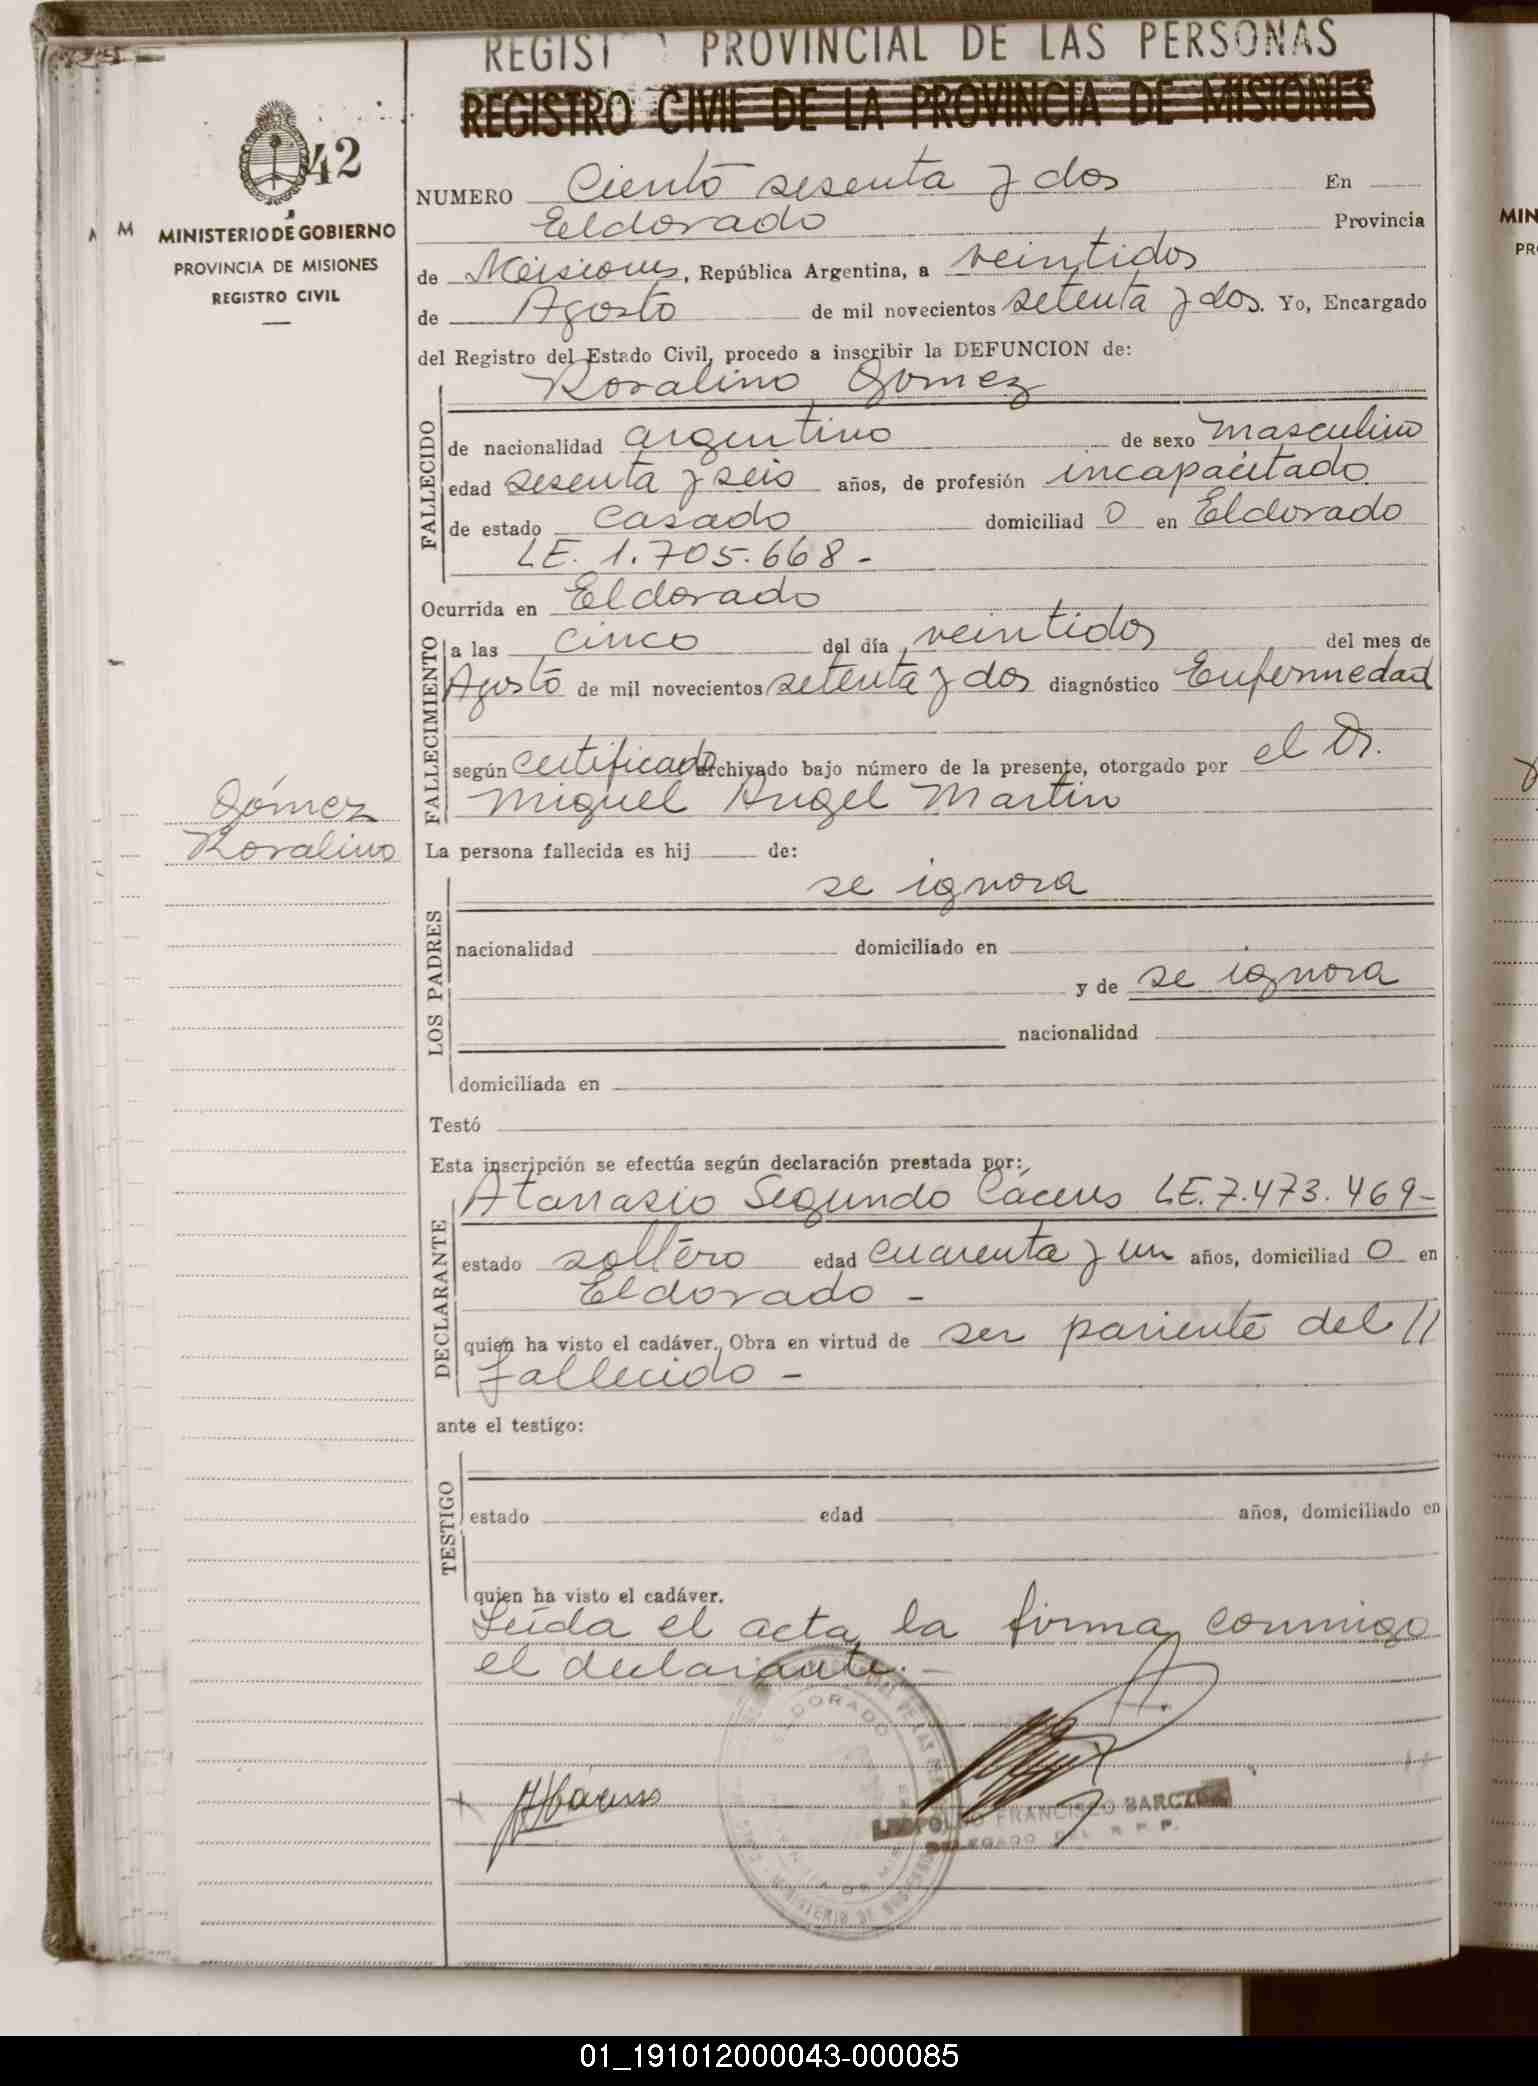 REGIST PROVINCIAL DE LAS PERSONAS
REGISTRO CIVIL DE LA PROVINCIA DE MISIONES
42
MINISTERIO DE GOBIERNO
PROVINCIA DE MISIONES
REGISTRO CIVIL
NUMERO Ciento sesenta y dos En
Eldorado Provincia
de Misiones, República Argentina, a veintidos
de Agosto de mil novecientos setenta y dos. Yo, Encargado
del Registro del Estado Civil, procedo a inscribir la DEFUNCION de:
Rosalino Gomez
FALLECIDO
de nacionalidad argentino de sexo masculino
edad sesenta y seis años, de profesión incapacitado
de estado casado domiciliad o en Eldorado
LE. 1.705.668-
Ocurrida en Eldorado
FALLECIMIENTO
a las cinco del día veintidos del mes de
Agosto de mil novecientos setenta y dos diagnóstico Enfermedad
según certificado archivado bajo número de la presente, otorgado por el Dr.
Miguel Angel Martin
Gómez
Rosalino
La persona fallecida es hij de:
se ignora
LOS PADRES
nacionalidad domiciliado en
y de se ignora
nacionalidad
domiciliada en
Testó
Esta inscripción se efectúa según declaración prestada por:
Atanasio Segundo Cáceres LE. 7.473.469-
DECLARANTE
estado soltero edad cuarenta y un años, domiciliad o en
Eldorado -
quien ha visto el cadáver. Obra en virtud de ser pariente del //
fallecido -
ante el testigo:
TESTIGO
estado edad años, domiciliado en
quien ha visto el cadáver.
Leída el acta, la firma conmigo
el declarante. -
ELDORADO
FRANCISCO
DELEGADO DEL R. P. P.
01_191012000043-000085